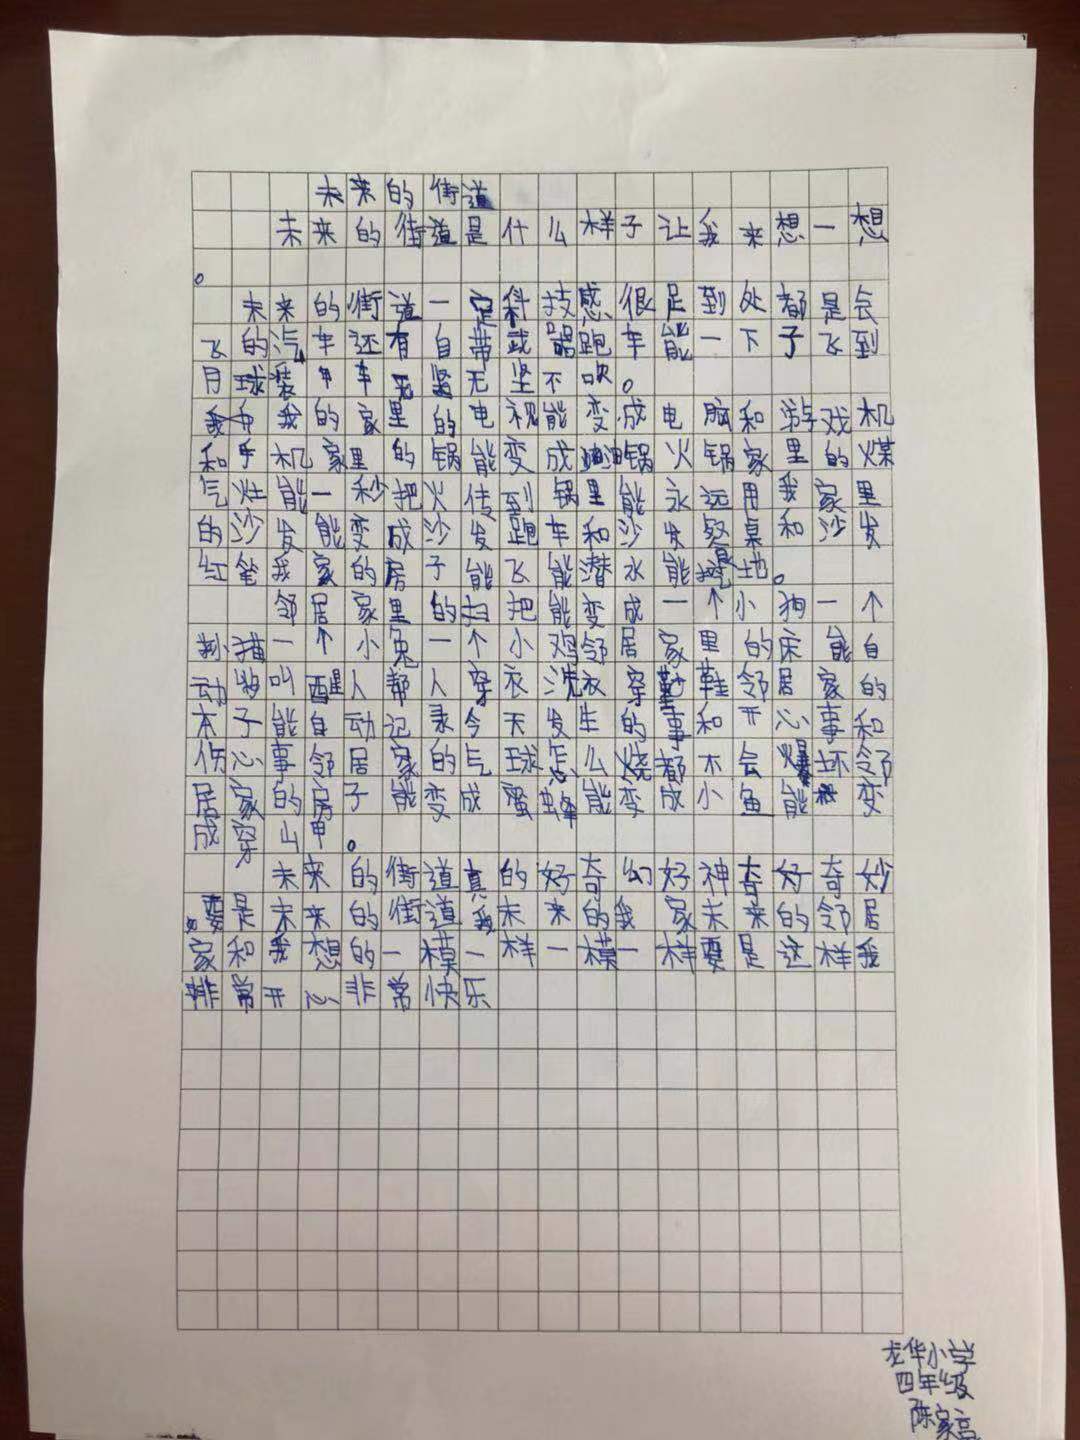 未来的街道
未来的街道是什么样子让我来想一想
。
未来的街道一定科技感很足到处都是会
飞的汽车还有自带武器跑车能一下子飞到
月球装甲车无坚不吹。
我的家里的电视能变成电脑和游戏机
和手机家里的锅能变成油锅火锅家里的煤
气灶能一秒把火传到锅里能永远用我家里
的沙发能变成沙发跑车和沙发餐桌和沙发
红笔我家的房子能飞能潜水能挖地。
邻居家里的扫把能变成一个小狗一个
小猫一个小兔一个小鸡邻居家里的床能自
动叫醒人帮人穿衣洗衣穿鞋邻居家的
本子能自动记录今天发生的事和开心事和
伤心事邻居家的气球怎么烧都不会爆坏邻
居家的房子能变成蜜蜂能变成小鱼能变
成穿山甲。
未来的街道真的好奇幻好神奇好奇妙
。要是未来的街道我未来的我家未来的邻居
家和我想的一模一样一模一样要是这样我
非常开心非常快乐
龙华小学
四年级
陈家